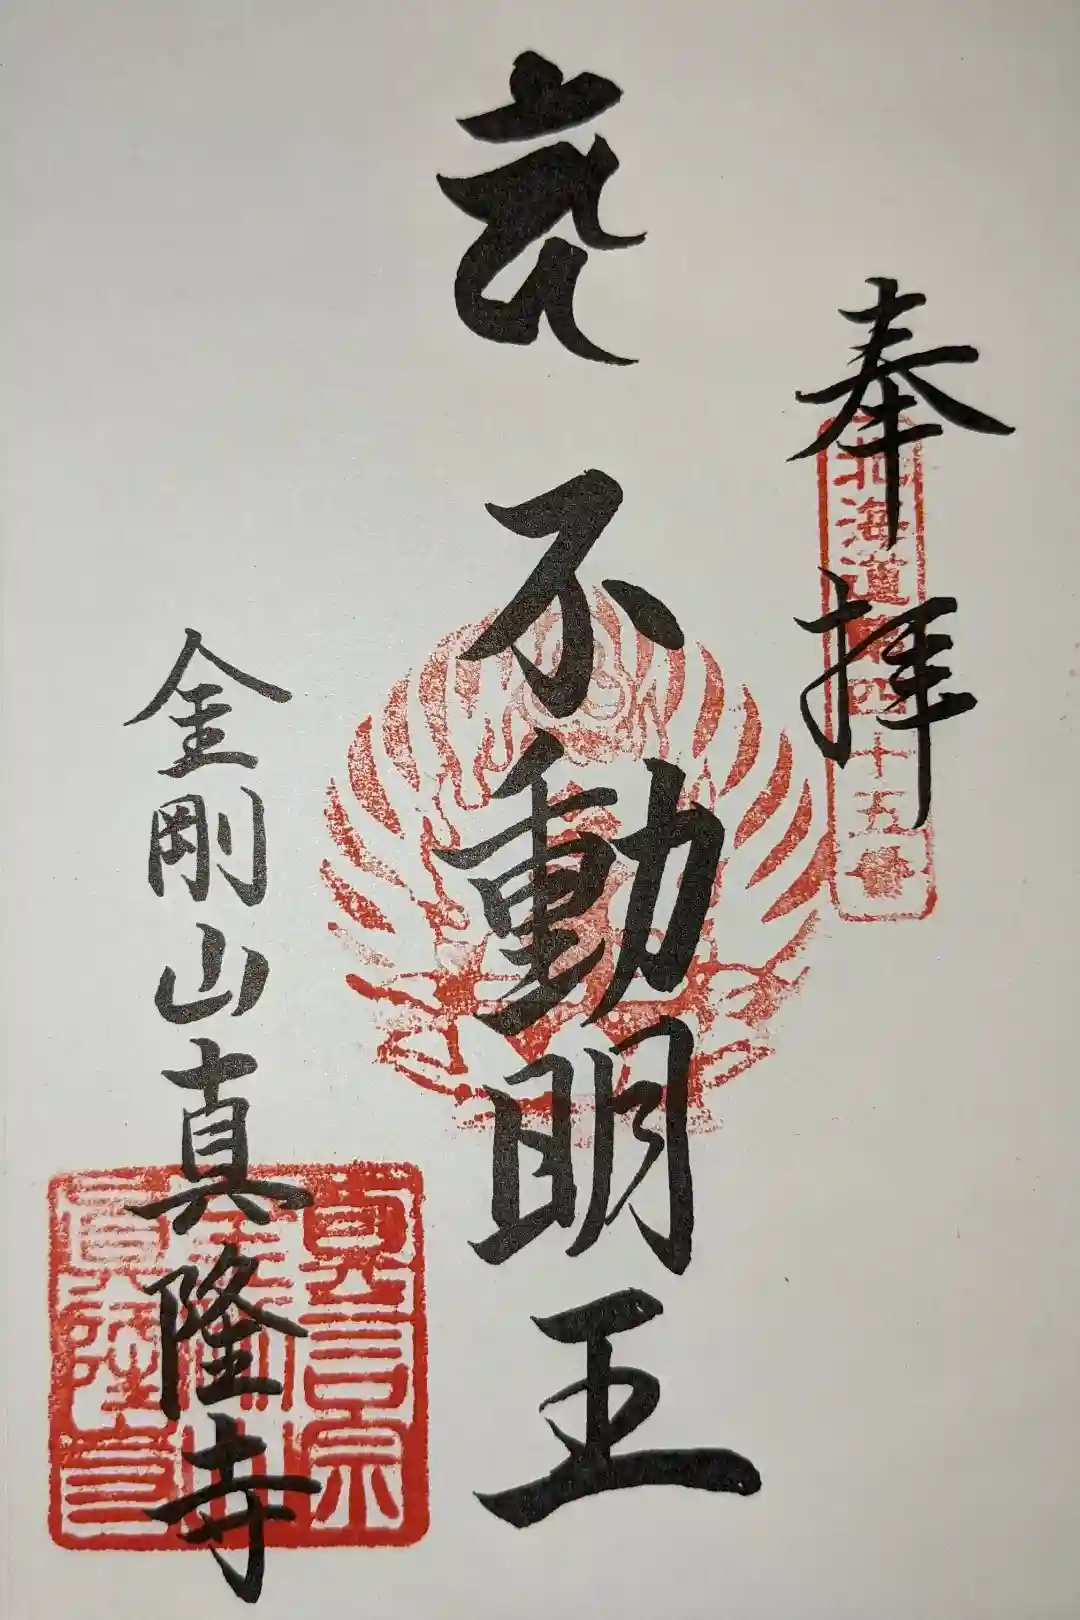 奉拝
北海道第四十五番
不動明王
金剛山真隆寺
真言宗
金剛山
真隆寺